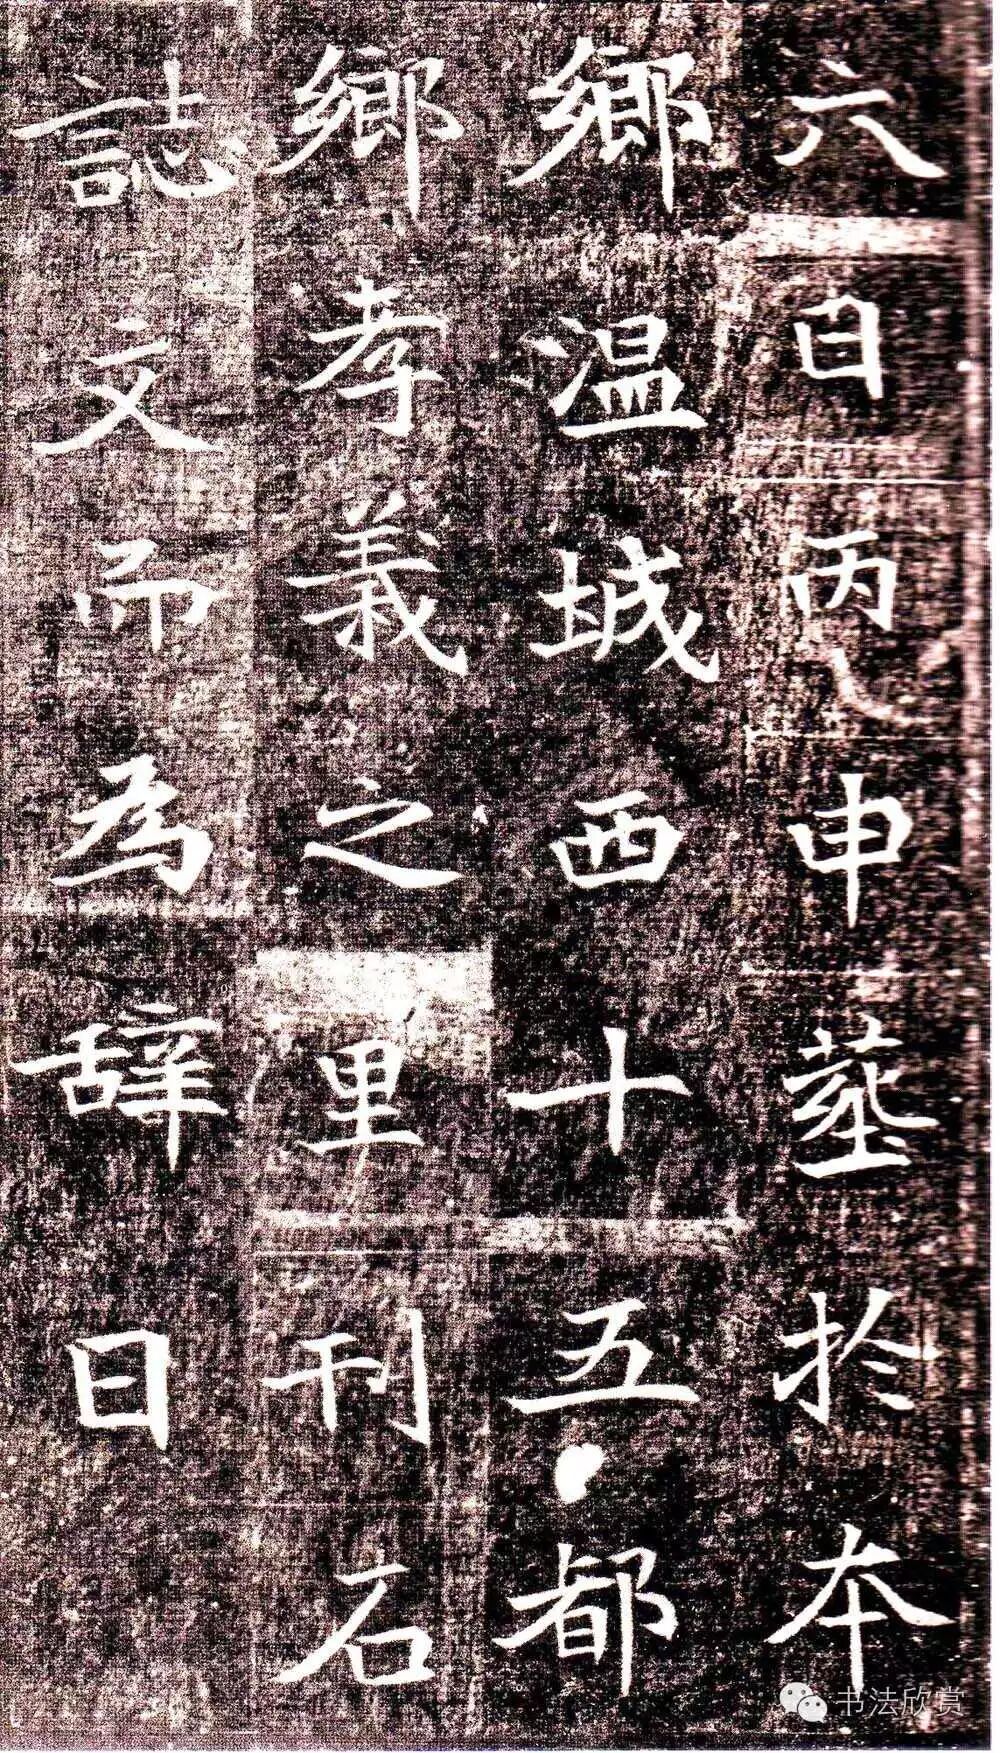 六日丙申葬於本
鄉温城西十五都
鄉孝義之里刊石
誌文而為辞曰
书法欣赏